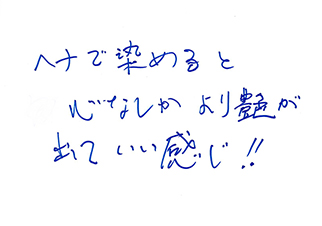 ヘナで染めると
心なしか より艶が
出て いい感じ!!